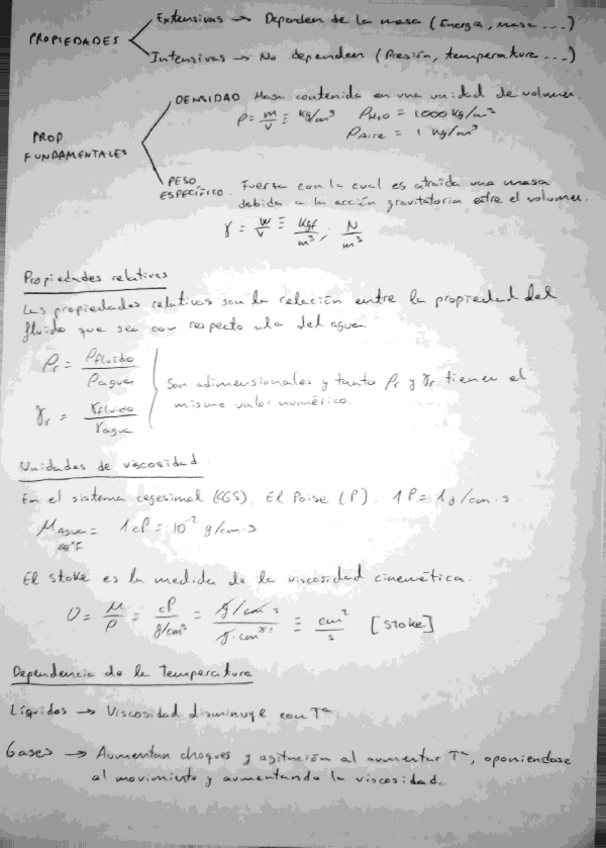 PROPIEDADES
Extensivas → Dependen de la masa (Energía, masa...)
Intensivas → No dependen (Presión, temperatura...)
PROP FUNDAMENTALES
DENSIDAD Masa contenida en una unidad de volumen.
ρ = m/v ≡ kg/m³ ρH₂O = 1000 kg/m³
ρAire = 1 kg/m³
PESO ESPECÍFICO. Fuerza con la cual es atraída una masa
debida a la acción gravitatoria entre el volumen.
γ = w/v ≡ kgf/m³ ; N/m³
Propiedades relativas
Las propiedades relativas son la relación entre la propiedad del
fluido que sea con respecto a la del agua.
ρr = ρfluido/ρagua
γr = γfluido/γagua
Son adimensionales y tanto ρr y γr tienen el
mismo valor numérico.
Unidades de viscosidad
En el sistema cegesimal (CGS). El Poise (P). 1P = 1g/cm·s
μAgua = 1cP = 10⁻² g/cm·s
El stoke es la medida de la viscosidad cinemática.
υ = μ/ρ = cP/g/cm³ = g/cm·s ≡ cm²/s [stoke]
Dependencia de la Temperatura
Líquidos → Viscosidad disminuye con Tª
Gases → Aumentan choques y agitación al aumentar Tª, oponiendose
al movimiento y aumentando la viscosidad.